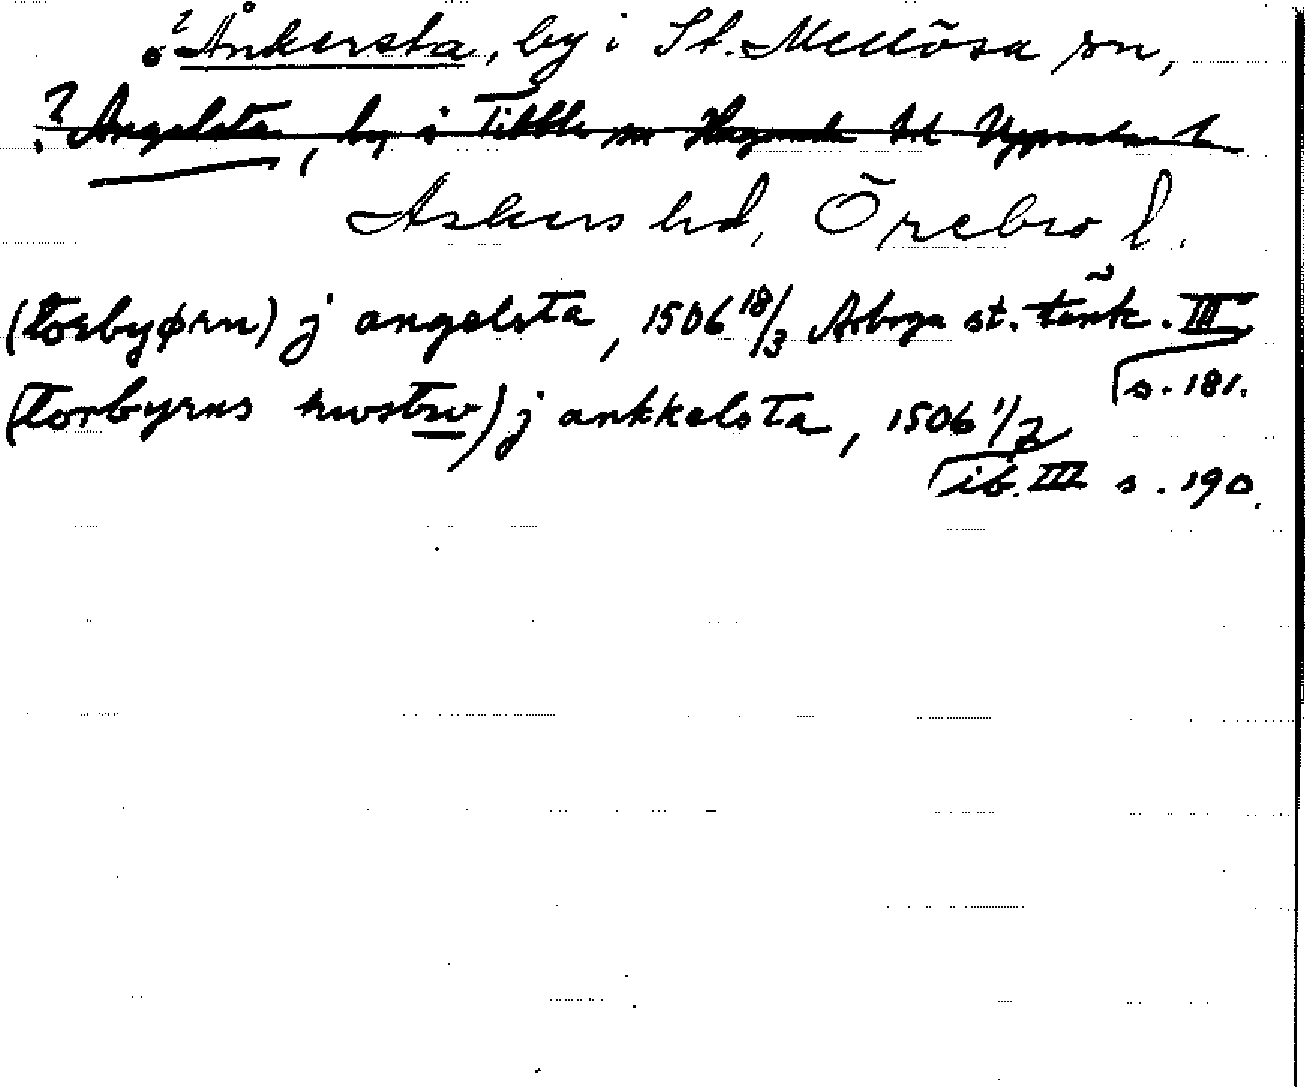 ? Ånkersta, by i St. Mellösa sn,
? Angelsta, by i Tibble sn Hagunda hd Uppsala l
Askers hd, Örebro l.
(torbyørn) j angelsta, 1506 18/3 Arboga st. tänk. III
s. 181.
(torbyrns hwstrv) j ankkelsta, 1506 1/7
ib. III s. 190.